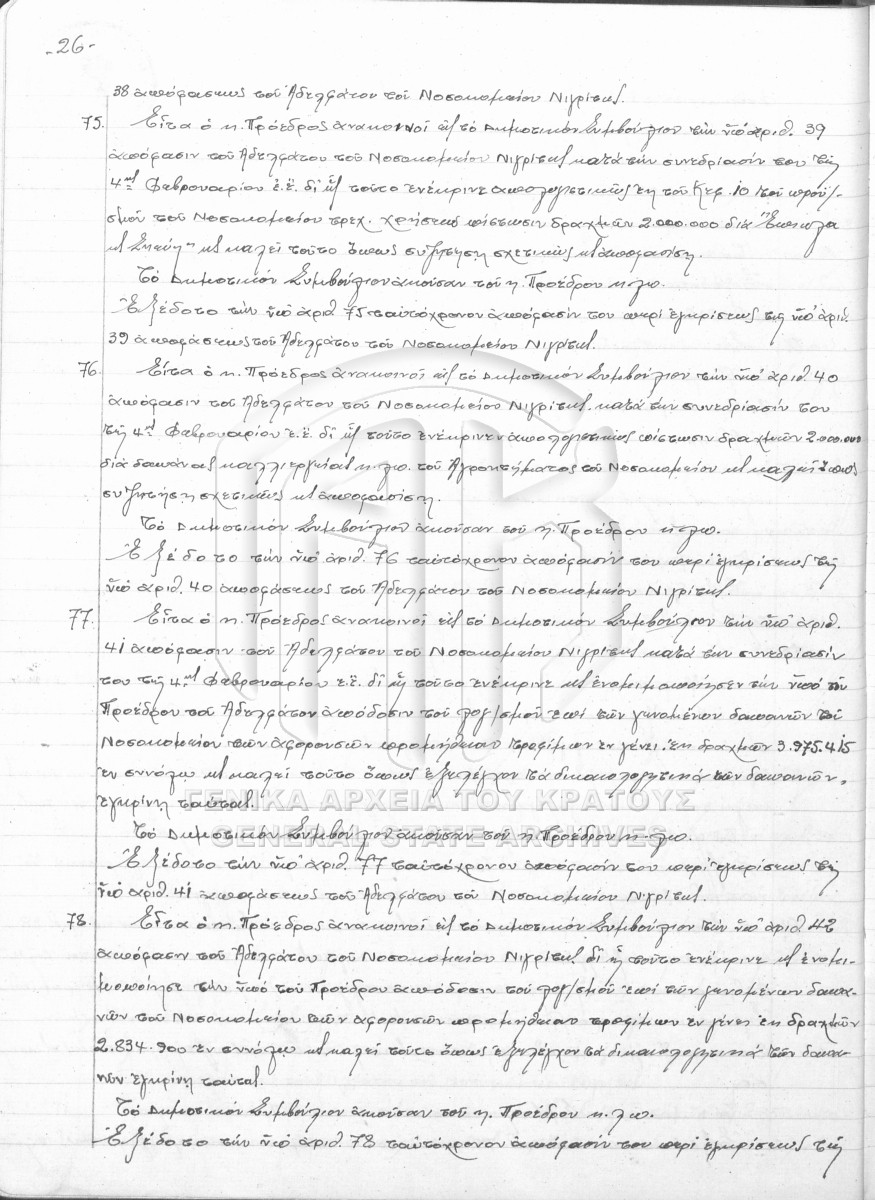 -26-
38 ἀποφάσεως τοῦ Ἀδελφάτου τοῦ Νοσοκομείου Νιγρίτης.
75. Εἶτα ὁ κ. Πρόεδρος ἀνακοινοῖ εἰς τὸ Δημοτικόν Συμβούλιον τὴν ὑπ' ἀριθ. 39
ἀπόφασιν τοῦ Ἀδελφάτου τοῦ Νοσοκομείου Νιγρίτης κατὰ τὴν συνεδρίασίν του τῆς
4ης Φεβρουαρίου ἐ.ἔ. δι' ἧς τοῦτο ἐνέκρινε ἀπολογιστικῶς ἐκ τοῦ Κεφ. 10 τοῦ προϋ/-
σμοῦ τοῦ Νοσοκομείου τρεχ. χρήσεως πίστωσιν δραχμῶν 2.000.000 διὰ "Ἔπιπλα
κ Σκεύη" κ καλεῖ τοῦτο ὅπως συζητήσῃ σχετικῶς κ ἀποφασίσῃ.
Τὸ Δημοτικόν Συμβούλιον ἀκοῦσαν τοῦ κ. Προέδρου κ.λπ.
Ἐξέδοτο τὴν ὑπ' ἀριθ. 75 ταὐτόχρονον ἀπόφασίν του περὶ ἐγκρίσεως τῆς ὑπ' ἀριθ.
39 ἀποφάσεως τοῦ Ἀδελφάτου τοῦ Νοσοκομείου Νιγρίτης.
76. Εἶτα ὁ κ. Πρόεδρος ἀνακοινοῖ εἰς τὸ Δημοτικόν Συμβούλιον τὴν ὑπ' ἀριθ. 40
ἀπόφασιν τοῦ Ἀδελφάτου τοῦ Νοσοκομείου Νιγρίτης κατὰ τὴν συνεδρίασίν του
τῆς 4ης Φεβρουαρίου ἐ.ἔ. δι' ἧς τοῦτο ἐνέκρινεν ἀπολογιστικῶς πίστωσιν δραχμῶν 2.000.000
διὰ δαπάνας καλλιεργείας κ.λπ. τοῦ Ἀγροκτήματος τοῦ Νοσοκομείου κ καλεῖ ὅπως
συζητήσῃ σχετικῶς κ ἀποφασίσῃ.
Τὸ Δημοτικόν Συμβούλιον ἀκοῦσαν τοῦ κ. Προέδρου κ.λπ.
Ἐξέδοτο τὴν ὑπ' ἀριθ. 76 ταὐτόχρονον ἀπόφασίν του περὶ ἐγκρίσεως τῆς
ὑπ' ἀριθ. 40 ἀποφάσεως τοῦ Ἀδελφάτου τοῦ Νοσοκομείου Νιγρίτης.
77. Εἶτα ὁ κ. Πρόεδρος ἀνακοινοῖ εἰς τὸ Δημοτικόν Συμβούλιον τὴν ὑπ' ἀριθ.
41 ἀπόφασιν τοῦ Ἀδελφάτου τοῦ Νοσοκομείου Νιγρίτης κατὰ τὴν συνεδρίασίν
του τῆς 4ης Φεβρουαρίου ἐ.ἔ. δι' ἧς τοῦτο ἐνέκρινε κ ἐνομιμοποίησεν τὴν ὑπὸ τοῦ
Προέδρου τοῦ Ἀδελφάτου ἀπόδοσιν τοῦ λογ/σμοῦ ἐπὶ τῶν γενομένων δαπανῶν τοῦ
Νοσοκομείου τῶν ἀφορουσῶν προμήθειαν τροφίμων ἐν γένει ἐκ δραχμῶν 3.975.415
ἐν συνόλῳ κ καλεῖ τοῦτο ὅπως ἐξελέγχον τὰ δικαιολογητικά τῶν δαπανῶν,
ἐγκρίνῃ ταύτας.
ΓΕΝΙΚΑ ΑΡΧΕΙΑ ΤΟΥ ΚΡΑΤΟΥΣ
GENERAL STATE ARCHIVES
Τὸ Δημοτικόν Συμβούλιον ἀκοῦσαν τοῦ κ Προέδρου κ.λπ.
Ἐξέδοτο τὴν ὑπ' ἀριθ. 77 ταὐτόχρονον ἀπόφασίν του περὶ ἐγκρίσεως τῆς
ὑπ' ἀριθ. 41 ἀποφάσεως τοῦ Ἀδελφάτου τοῦ Νοσοκομείου Νιγρίτης.
78. Εἶτα ὁ κ. Πρόεδρος ἀνακοινοῖ εἰς τὸ Δημοτικόν Συμβούλιον τὴν ὑπ' ἀριθ 42
ἀπόφασιν τοῦ Ἀδελφάτου τοῦ Νοσοκομείου Νιγρίτης δι' ἧς τοῦτο ἐνέκρινε κ ἐνομι-
μοποίησε τὴν ὑπὸ τοῦ Προέδρου ἀπόδοσιν τοῦ λογ/σμοῦ ἐπὶ τῶν γενομένων δαπα-
νῶν τοῦ Νοσοκομείου τῶν ἀφορουσῶν προμήθειαν τροφίμων ἐν γένει ἐκ δραχμῶν
2.834.900 ἐν συνόλῳ κ καλεῖ τοῦτο ὅπως ἐξελέγχον τὰ δικαιολογητικά τῶν δαπα-
νῶν ἐγκρίνῃ ταύτας.
Τὸ Δημοτικόν Συμβούλιον ἀκοῦσαν τοῦ κ. Προέδρου κ.λπ.
Ἐξέδοτο τὴν ὑπ' ἀριθ. 78 ταὐτόχρονον ἀπόφασίν του περὶ ἐγκρίσεως τῆς